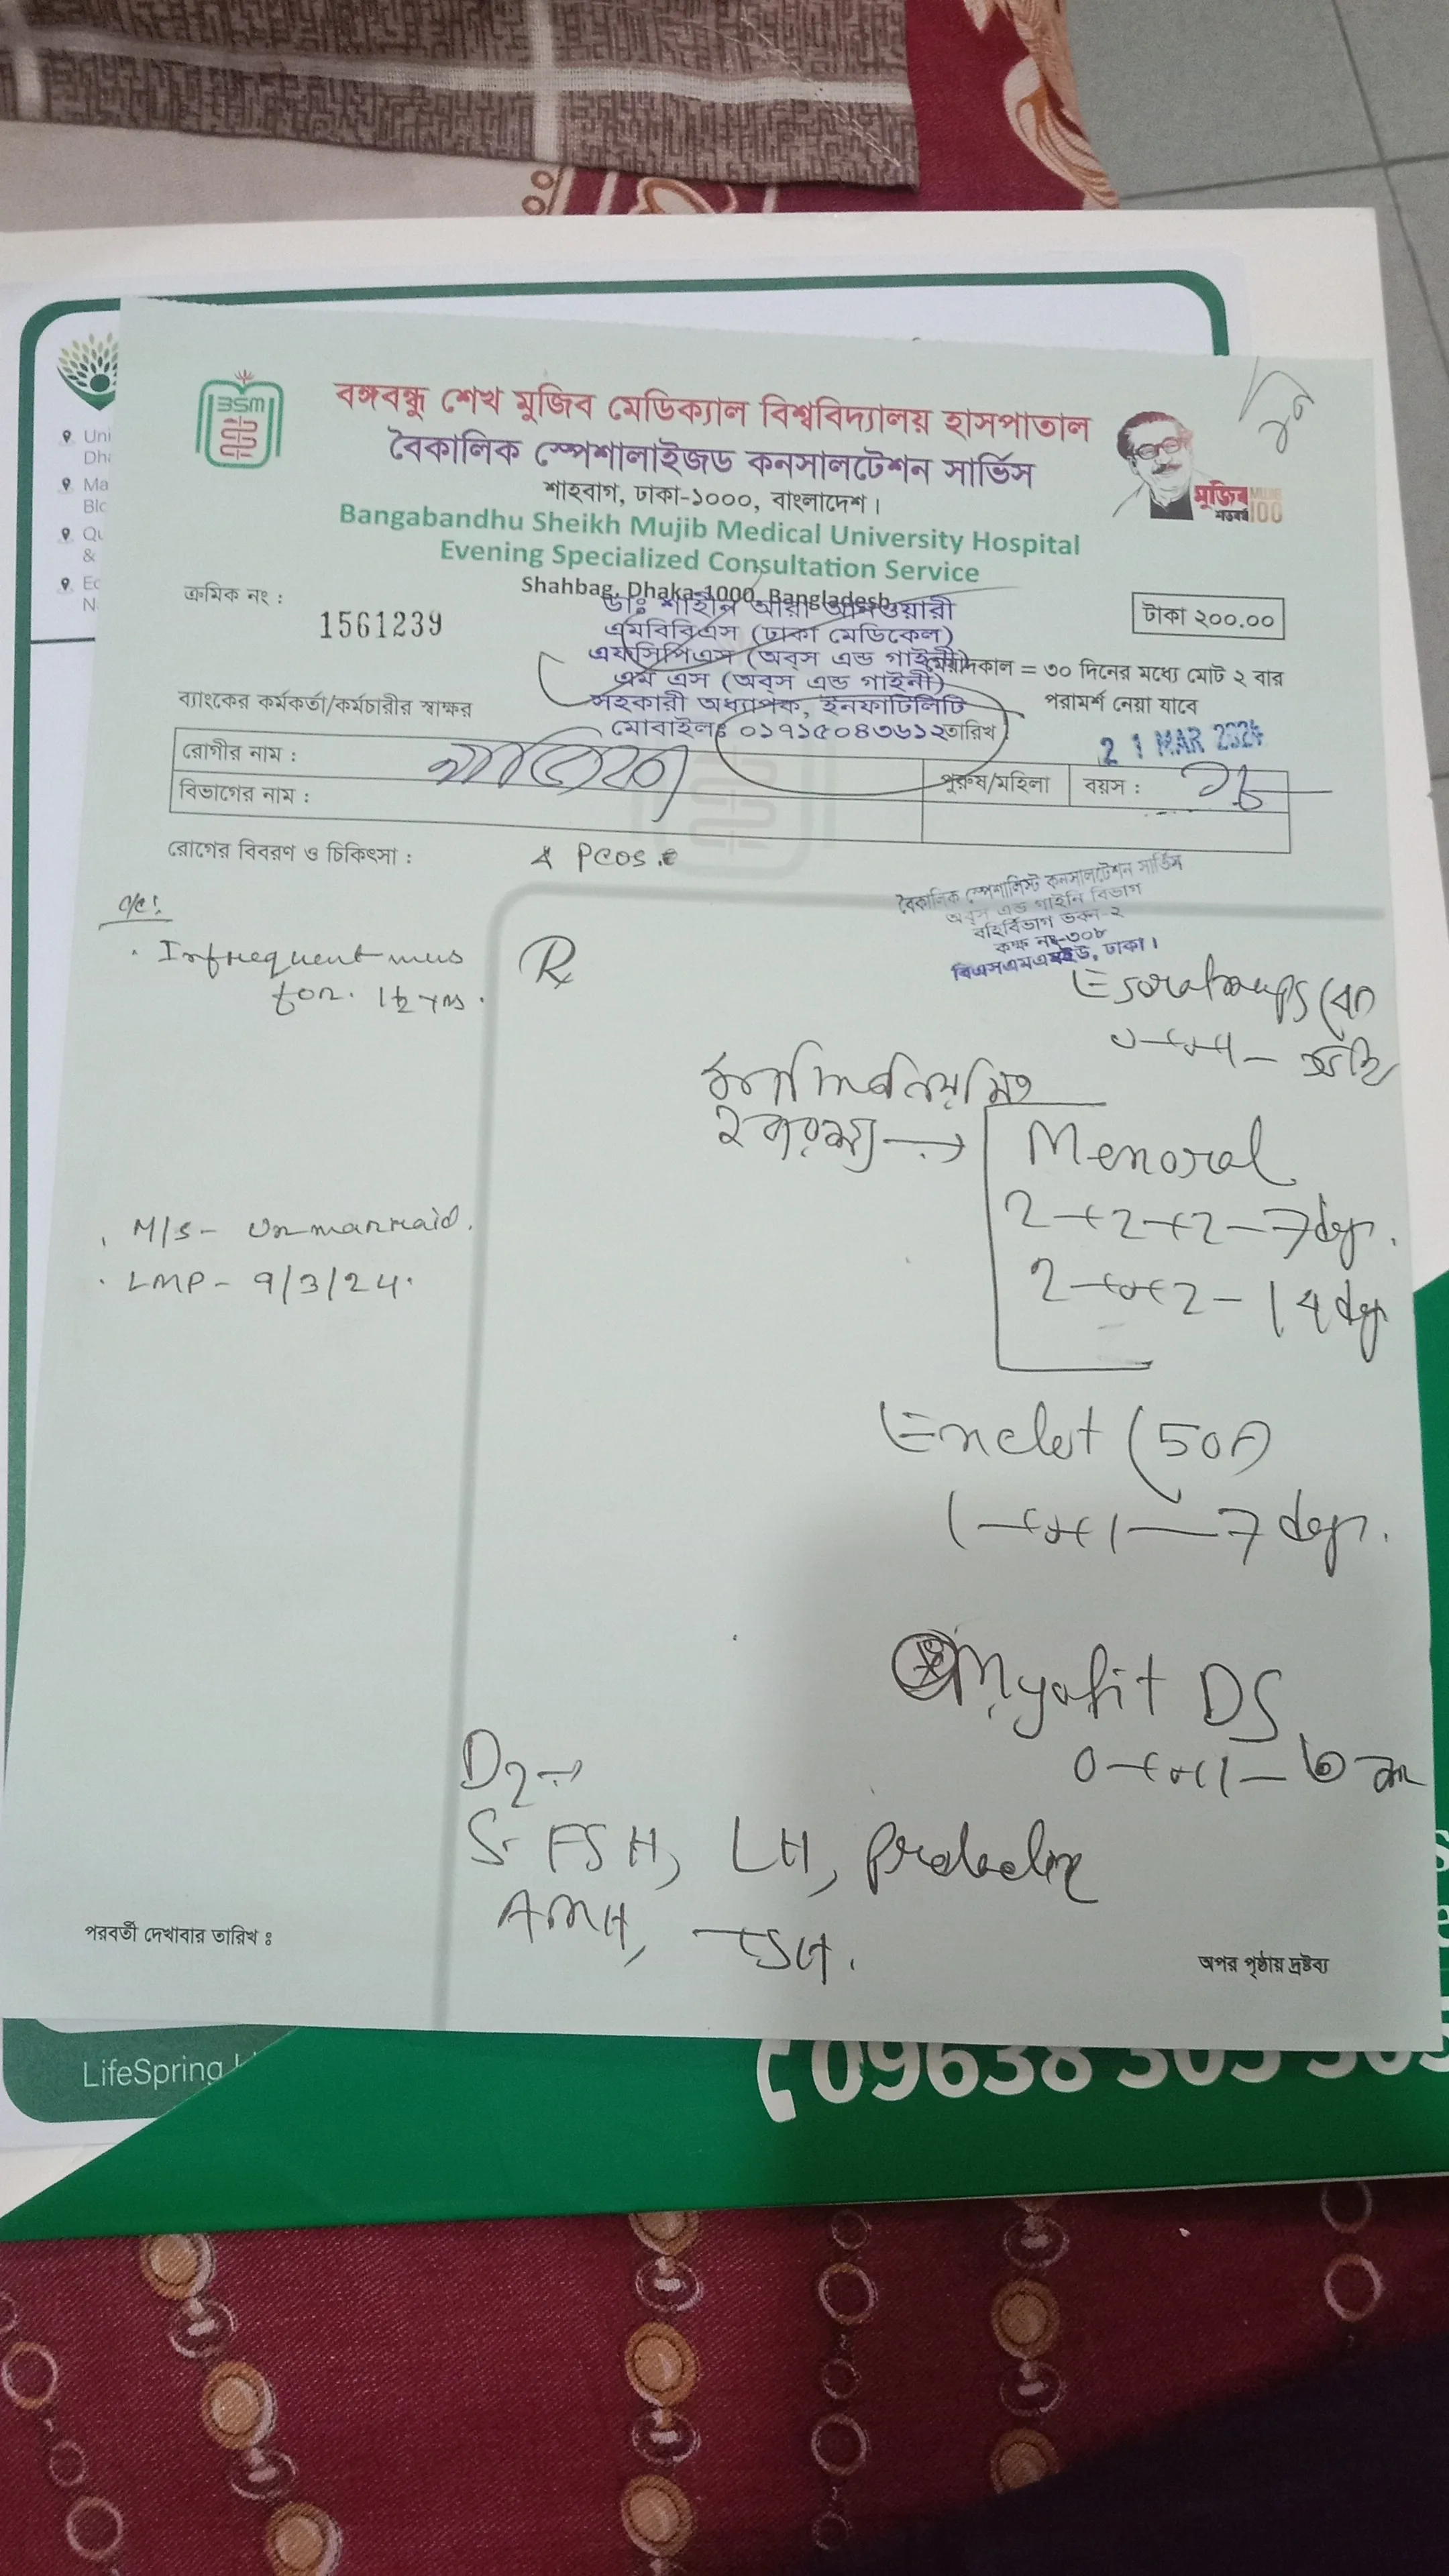 বঙ্গবন্ধু শেখ মুজিব মেডিক্যাল বিশ্ববিদ্যালয় হাসপাতাল
বৈকালিক স্পেশালাইজড কনসালটেশন সার্ভিস
শাহবাগ, ঢাকা-১০০০, বাংলাদেশ।
Bangabandhu Sheikh Mujib Medical University Hospital
Evening Specialized Consultation Service
Shahbag, Dhaka-1000, Bangladesh.
BSM
মুজিব
শতবর্ষ
MUJIB
100
Uni
Dha
Ma
Blo
Qu
&
Ec
N
ক্রমিক নং :
1561239
টাকা ২০০.০০
ডাঃ শাহীন আরা আনওয়ারী
এমবিবিএস (ঢাকা মেডিকেল)
এফসিপিএস (অব্‌স এন্ড গাইনী)
এম এস (অব্‌স এন্ড গাইনী)
সহকারী অধ্যাপক, ইনফার্টিলিটি
মোবাইলঃ ০১৭১৫০৪৩৬১২
মেয়াদকাল = ৩০ দিনের মধ্যে মোট ২ বার
পরামর্শ নেয়া যাবে
ব্যাংকের কর্মকর্তা/কর্মচারীর স্বাক্ষর
তারিখ
21 MAR 2024
রোগীর নাম :
পুরুষ/মহিলা
বয়স :
বিভাগের নাম :
রোগের বিবরণ ও চিকিৎসা :
PCOS
বৈকালিক স্পেশালিস্ট কনসালটেশন সার্ভিস
অব্‌স এন্ড গাইনি বিভাগ
বহির্বিভাগ ভবন-২
কক্ষ নং-৩০৮
বিএসএমএমইউ, ঢাকা।
c/c:
Infrequent mens
for 1½ yrs.
Rx
Menoral
2+2+2-7 days.
2+0+2-14 days
M/S- Unmarraid.
LMP- 9/3/24.
(500)
1+0+1-7 days.
Myofit DS
0+0+1-
D2→
S. FSH, LH, Prolactin
AMH, TSH.
পরবর্তী দেখাবার তারিখ ঃ
অপর পৃষ্ঠায় দ্রষ্টব্য
LifeSpring
09638 505 505